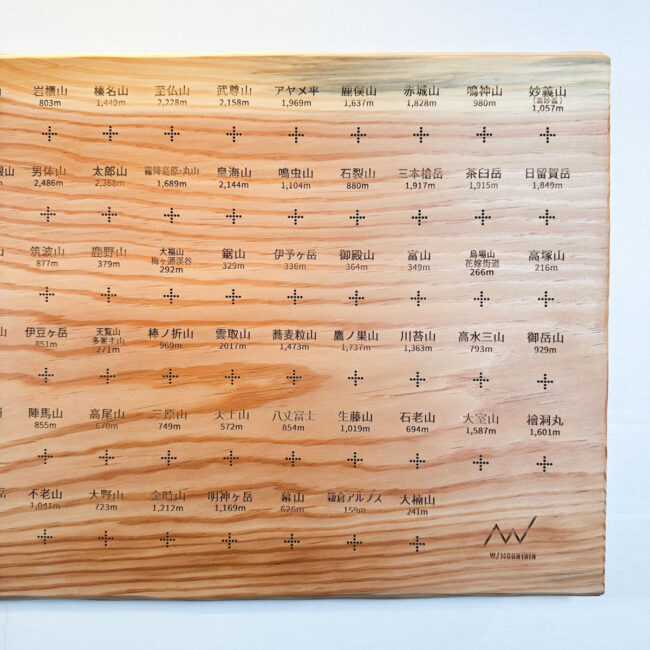 岩櫃山 榛名山 至仏山 武尊山 アヤメ平 鹿俣山 赤城山 鳴神山 妙義山
(裏妙義)
803m 1,449m 2,228m 2,158m 1,969m 1,637m 1,828m 980m 1,057m
男体山 太郎山 霧降高原・丸山 皇海山 鳴虫山 石裂山 三本槍岳 茶臼岳 日留賀岳
2,486m 2,368m 1,689m 2,144m 1,104m 880m 1,917m 1,915m 1,849m
山 筑波山 鹿野山 大福山 鋸山 伊予ヶ岳 御殿山 富山 烏場山 高塚山
梅ヶ瀬渓谷 花嫁街道
877m 379m 292m 329m 336m 364m 349m 266m 216m
山 伊豆ヶ岳 天覧山 棒ノ折山 雲取山 蕎麦粒山 鷹ノ巣山 川苔山 高水三山 御岳山
多峯主山
851m 271m 969m 2017m 1,473m 1,737m 1,363m 793m 929m
陣馬山 高尾山 三原山 天上山 八丈富士 生藤山 石老山 大室山 檜洞丸
855m 670m 749m 572m 854m 1,019m 694m 1,587m 1,601m
岳 不老山 大野山 金時山 明神ヶ岳 幕山 鎌倉アルプス 大楠山
1,041m 723m 1,212m 1,169m 626m 159m 241m
W/MOUNTAIN